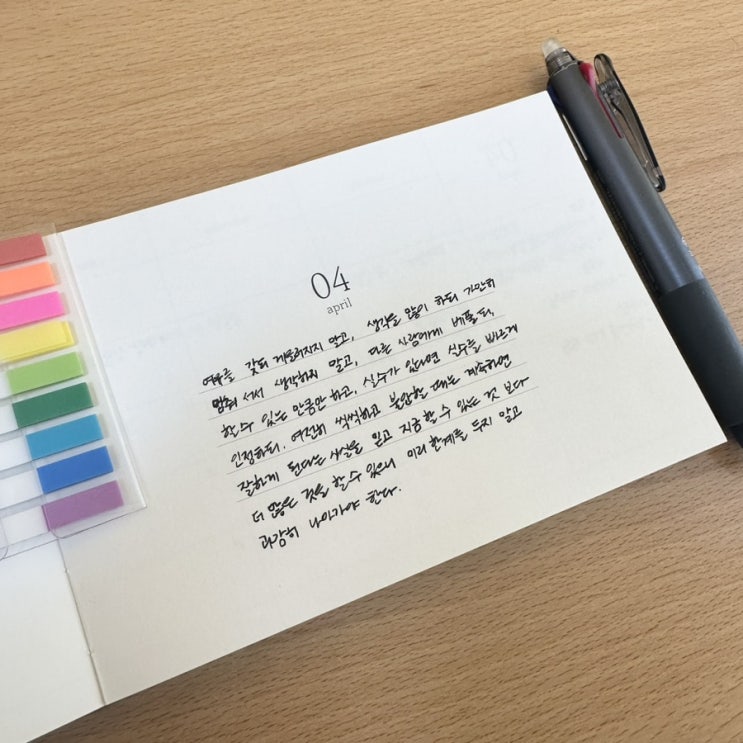 04
april
여유를 갖되 게을러지지 말고, 생각을 많이 하되 가만히
멈춰 서서 생각하지 말고, 다른 사람에게 베풀되,
할 수 있는 만큼만 하고, 실수가 있다면 실수를 빠르게
인정하되, 여전히 씩씩하고 불안할 때는 계속하면
잘하게 된다는 사실을 믿고 지금 할 수 있는 것 보다
더 많은 것을 할 수 있으니 미리 한계를 두지 말고
과감히 나아가야 한다.